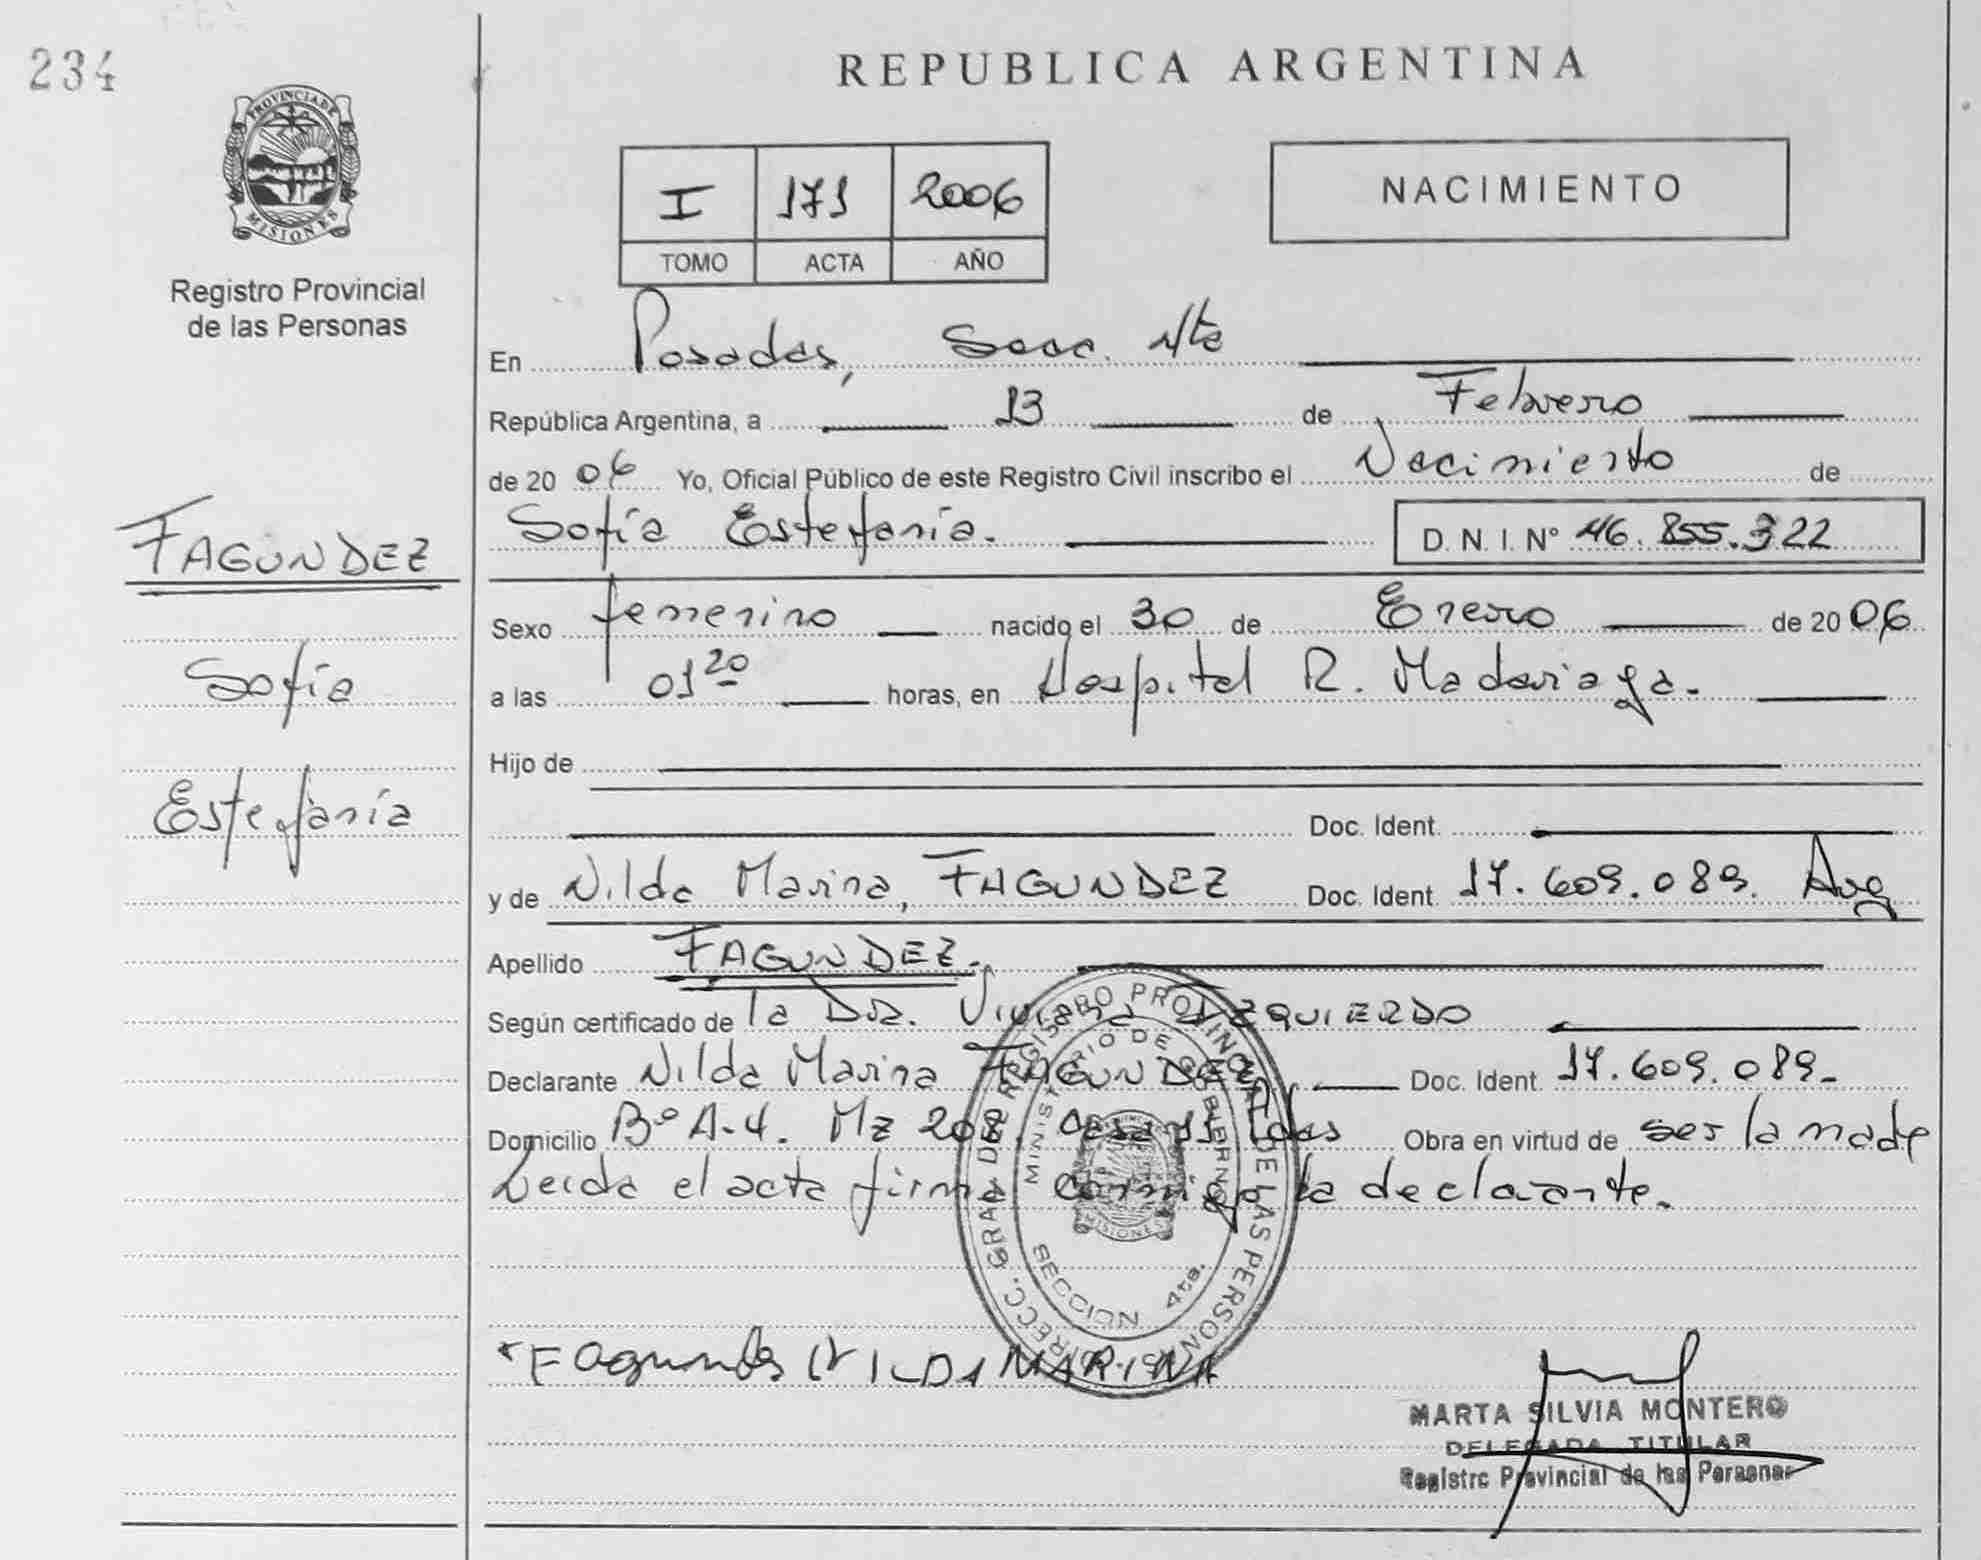 234
REPUBLICA ARGENTINA
PROVINCIA DE
MISIONES
Registro Provincial
de las Personas
I 171 2006
TOMO ACTA AÑO
NACIMIENTO
En Posadas, Secc. 4ta
República Argentina, a 13 de Febrero
de 2006 Yo, Oficial Público de este Registro Civil inscribo el Nacimiento de
Sofía Estefanía. D. N. I. Nº 46.855.322
FAGUNDEZ
Sofía
Estefanía
Sexo femenino nacido el 30 de Enero de 2006
a las 01 20 horas, en Hospital R. Madariaga.
Hijo de
Doc. Ident.
y de Nilda Marina, FAGUNDEZ Doc. Ident 17.609.089. Arg
Apellido FAGUNDEZ.
Según certificado de la Dra. Viviana IZQUIERDO
Declarante Nilda Marina FAGUNDEZ Doc. Ident. 17.609.089-
Domicilio Bº A-4. Mz 208, casa Pdas Obra en virtud de ser la madre
Leida el acta firma conmigo la declarante.
DIRECC. GRAL. DE REGISTRO PROVINCIAL DE LAS PERSONAS
MINISTERIO DE GOBIERNO
MISIONES
SECCION 4ta.
Fagundes NILDA MARINA
MARTA SILVIA MONTERO
DELEGADA TITULAR
Registro Provincial de las Personas